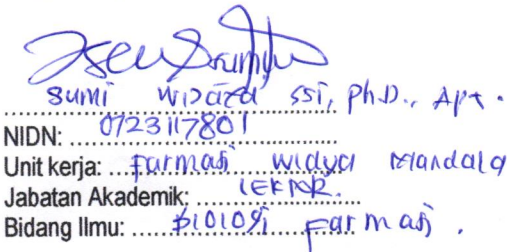 Sumi Wijaya SSi, Ph.D., Apt.
NIDN: 0723117801
Unit kerja: Farmasi Widya Mandala
Jabatan Akademik: LEKTOR.
Bidang Ilmu: Biologi Farmasi.